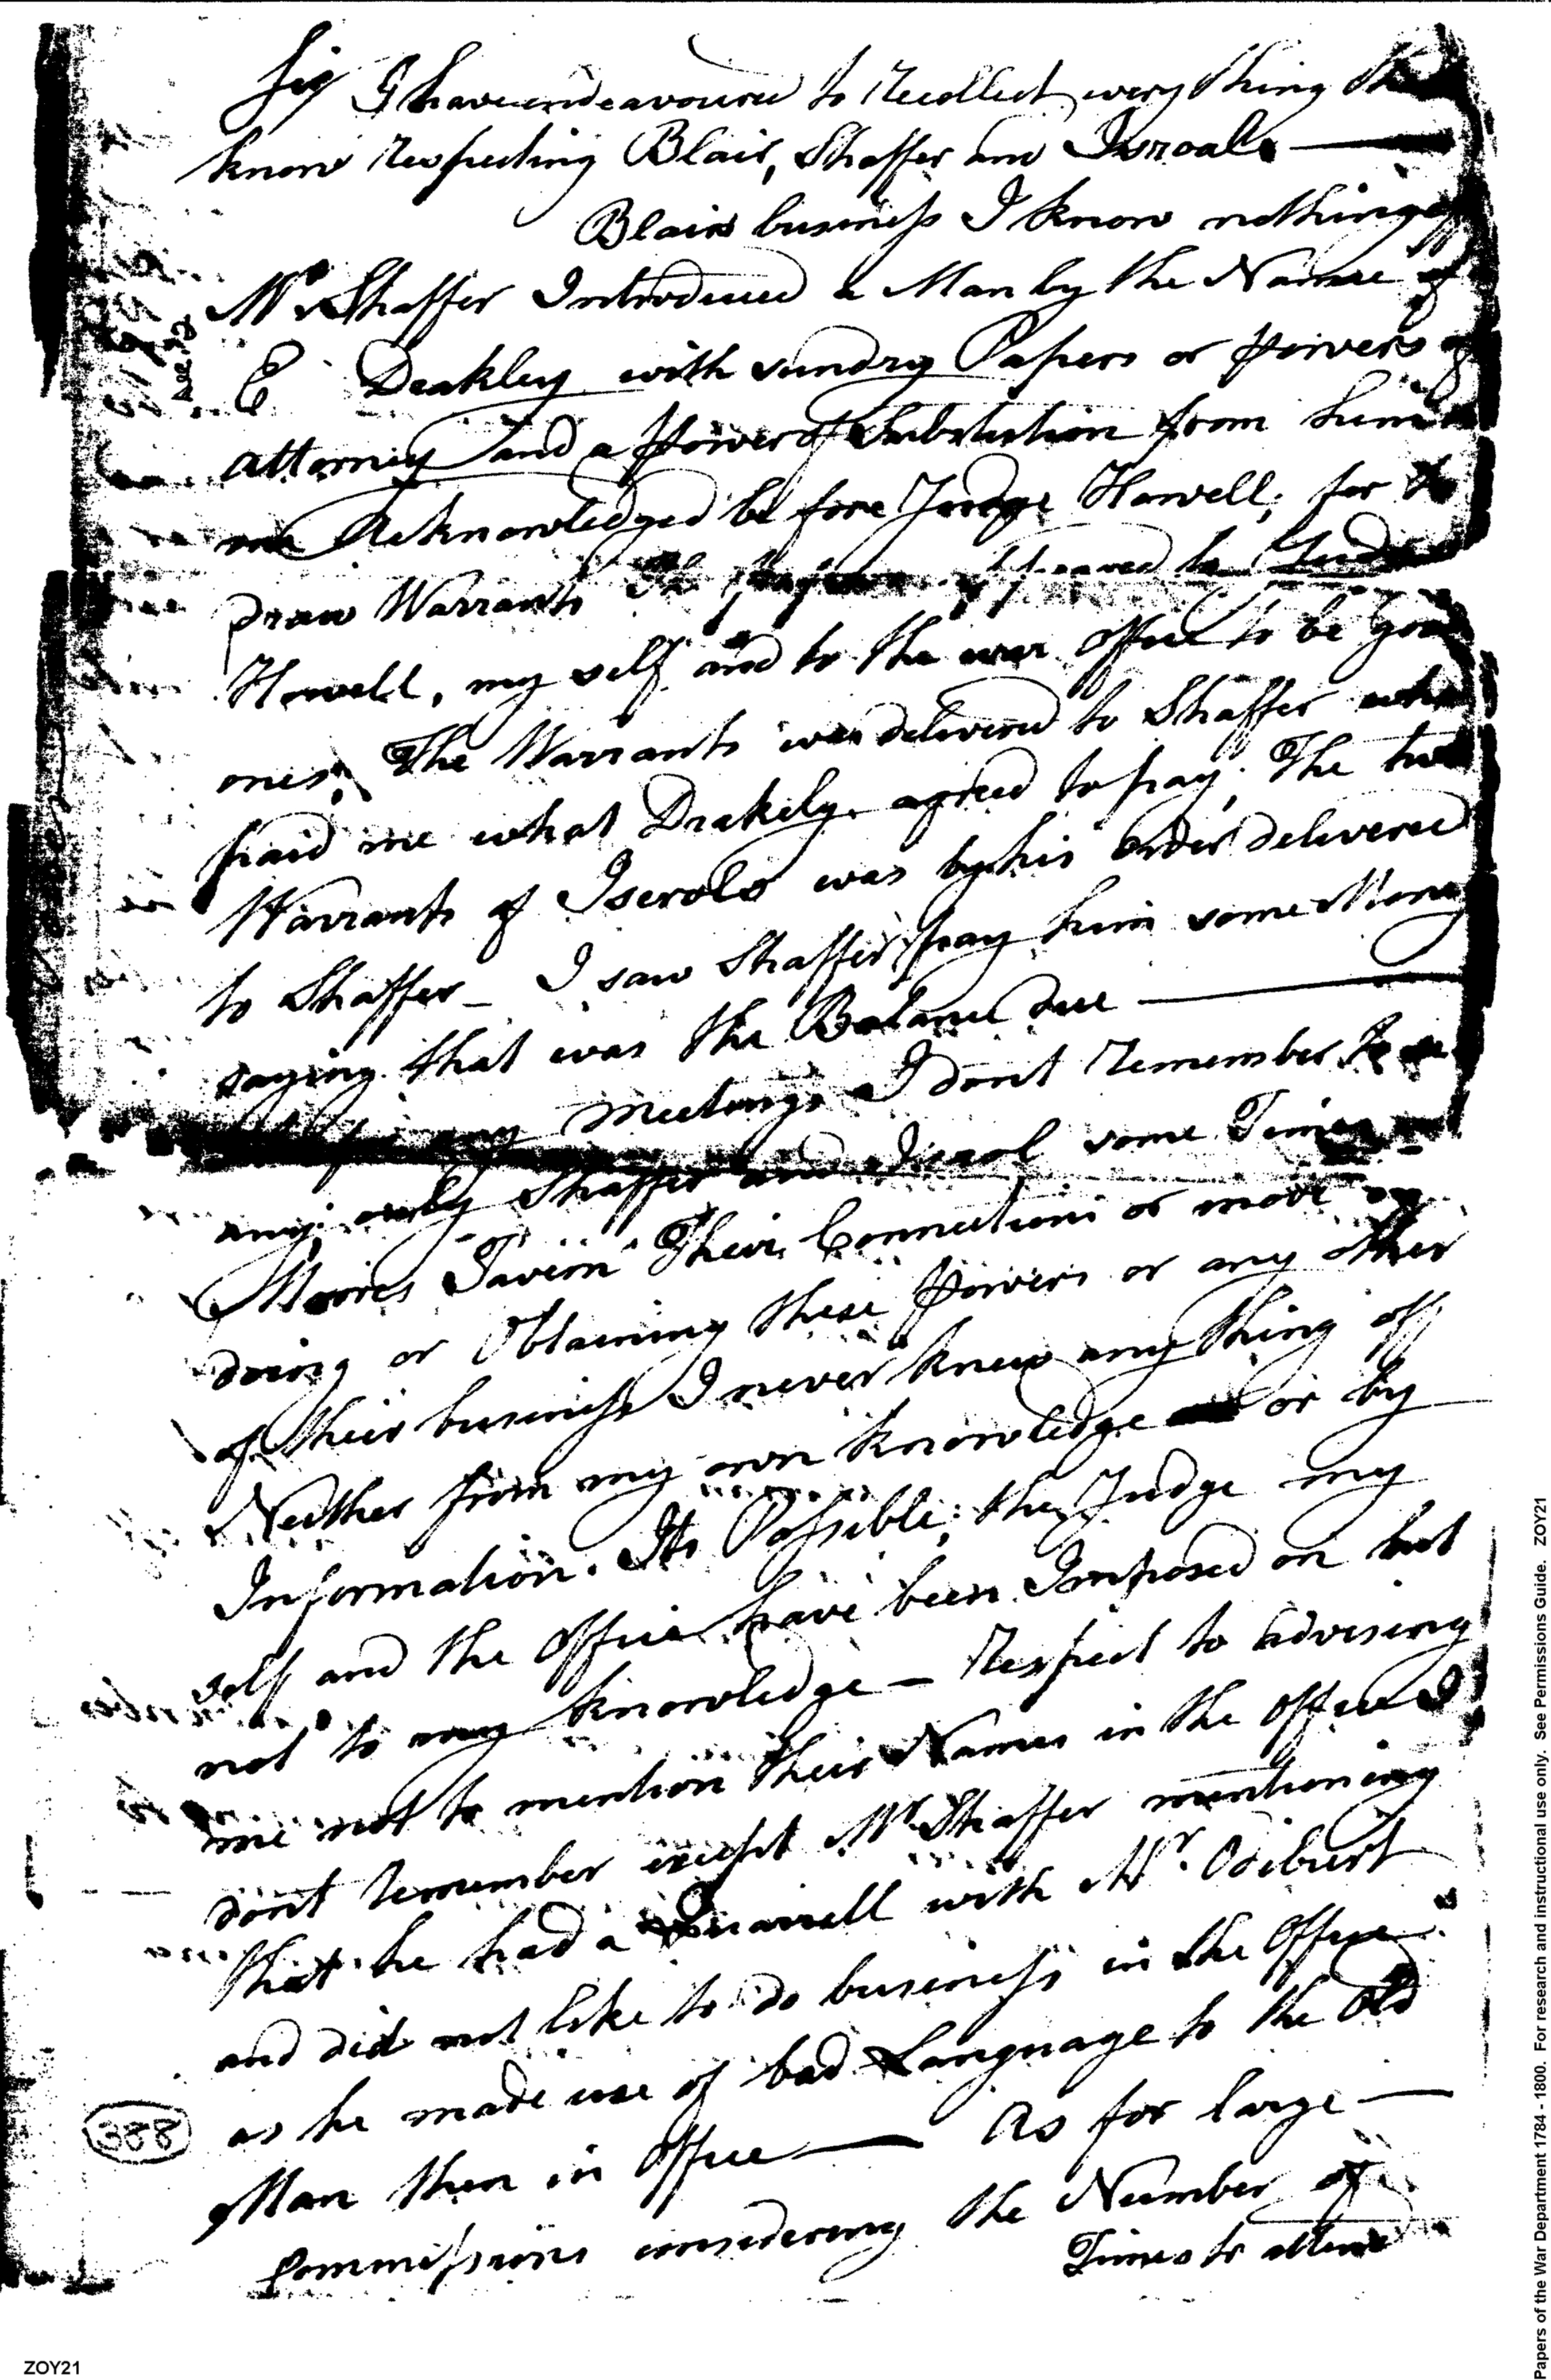 Sir I have endeavoured to Recollect every thing
know Respecting Blair, Shaffer and Isroals —
Blairs business I know nothing of
Mr Shaffer Introduced a Man by the Name of
E Deakley with sundry Papers or powers of
attorney and a power of Substution from him
me Acknowledged before Judge Howell, for to
Draw Warrants The papers appeared to Judge
Howell, my self and to the war Office to be good
ones. The Warrants was delivered to Shaffer who
paid me what Drakely agreed to pay; The two
Warrants of Iserols was by his order delivered
to Shaffer — I saw Shaffer pay him some Money
saying that was the Balance due —
any meetings I dont Remember
any only Shaffer and Iserol some Times
Moores Tavern Their Connections or mode of
doing or Obtaining these powers or any other
of their business I never knew any thing off
Neither from my own knowledge or by
Information. Its Possible; the Judge my
self and the Office have been Imposed on but
not to my knowledge — Respect to advising
me not to mention their Names in the Office I
dont Remember except Mr Shaffer mentioning
that he had a Quarrell with Mr. Osiburt
and did not like to do business in the Office
as he made use of bad Language to the Old
Man then in Office — As for large —
Commissions considering the Number of
Times to attend
388
ZOY21
Papers of the War Department 1784 - 1800. For research and instructional use only. See Permissions Guide. ZOY21